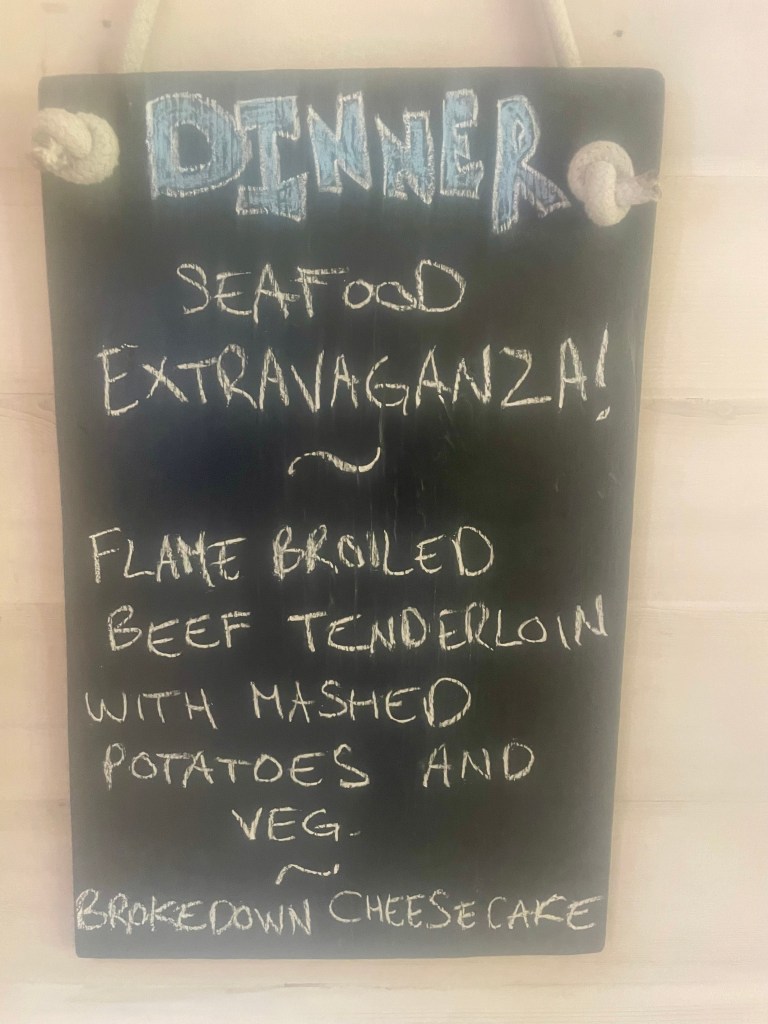 DINNER
SEAFOOD
EXTRAVAGANZA!
~
FLAME BROILED
BEEF TENDERLOIN
WITH MASHED
POTATOES AND
VEG.
~
BROKEDOWN CHEESECAKE